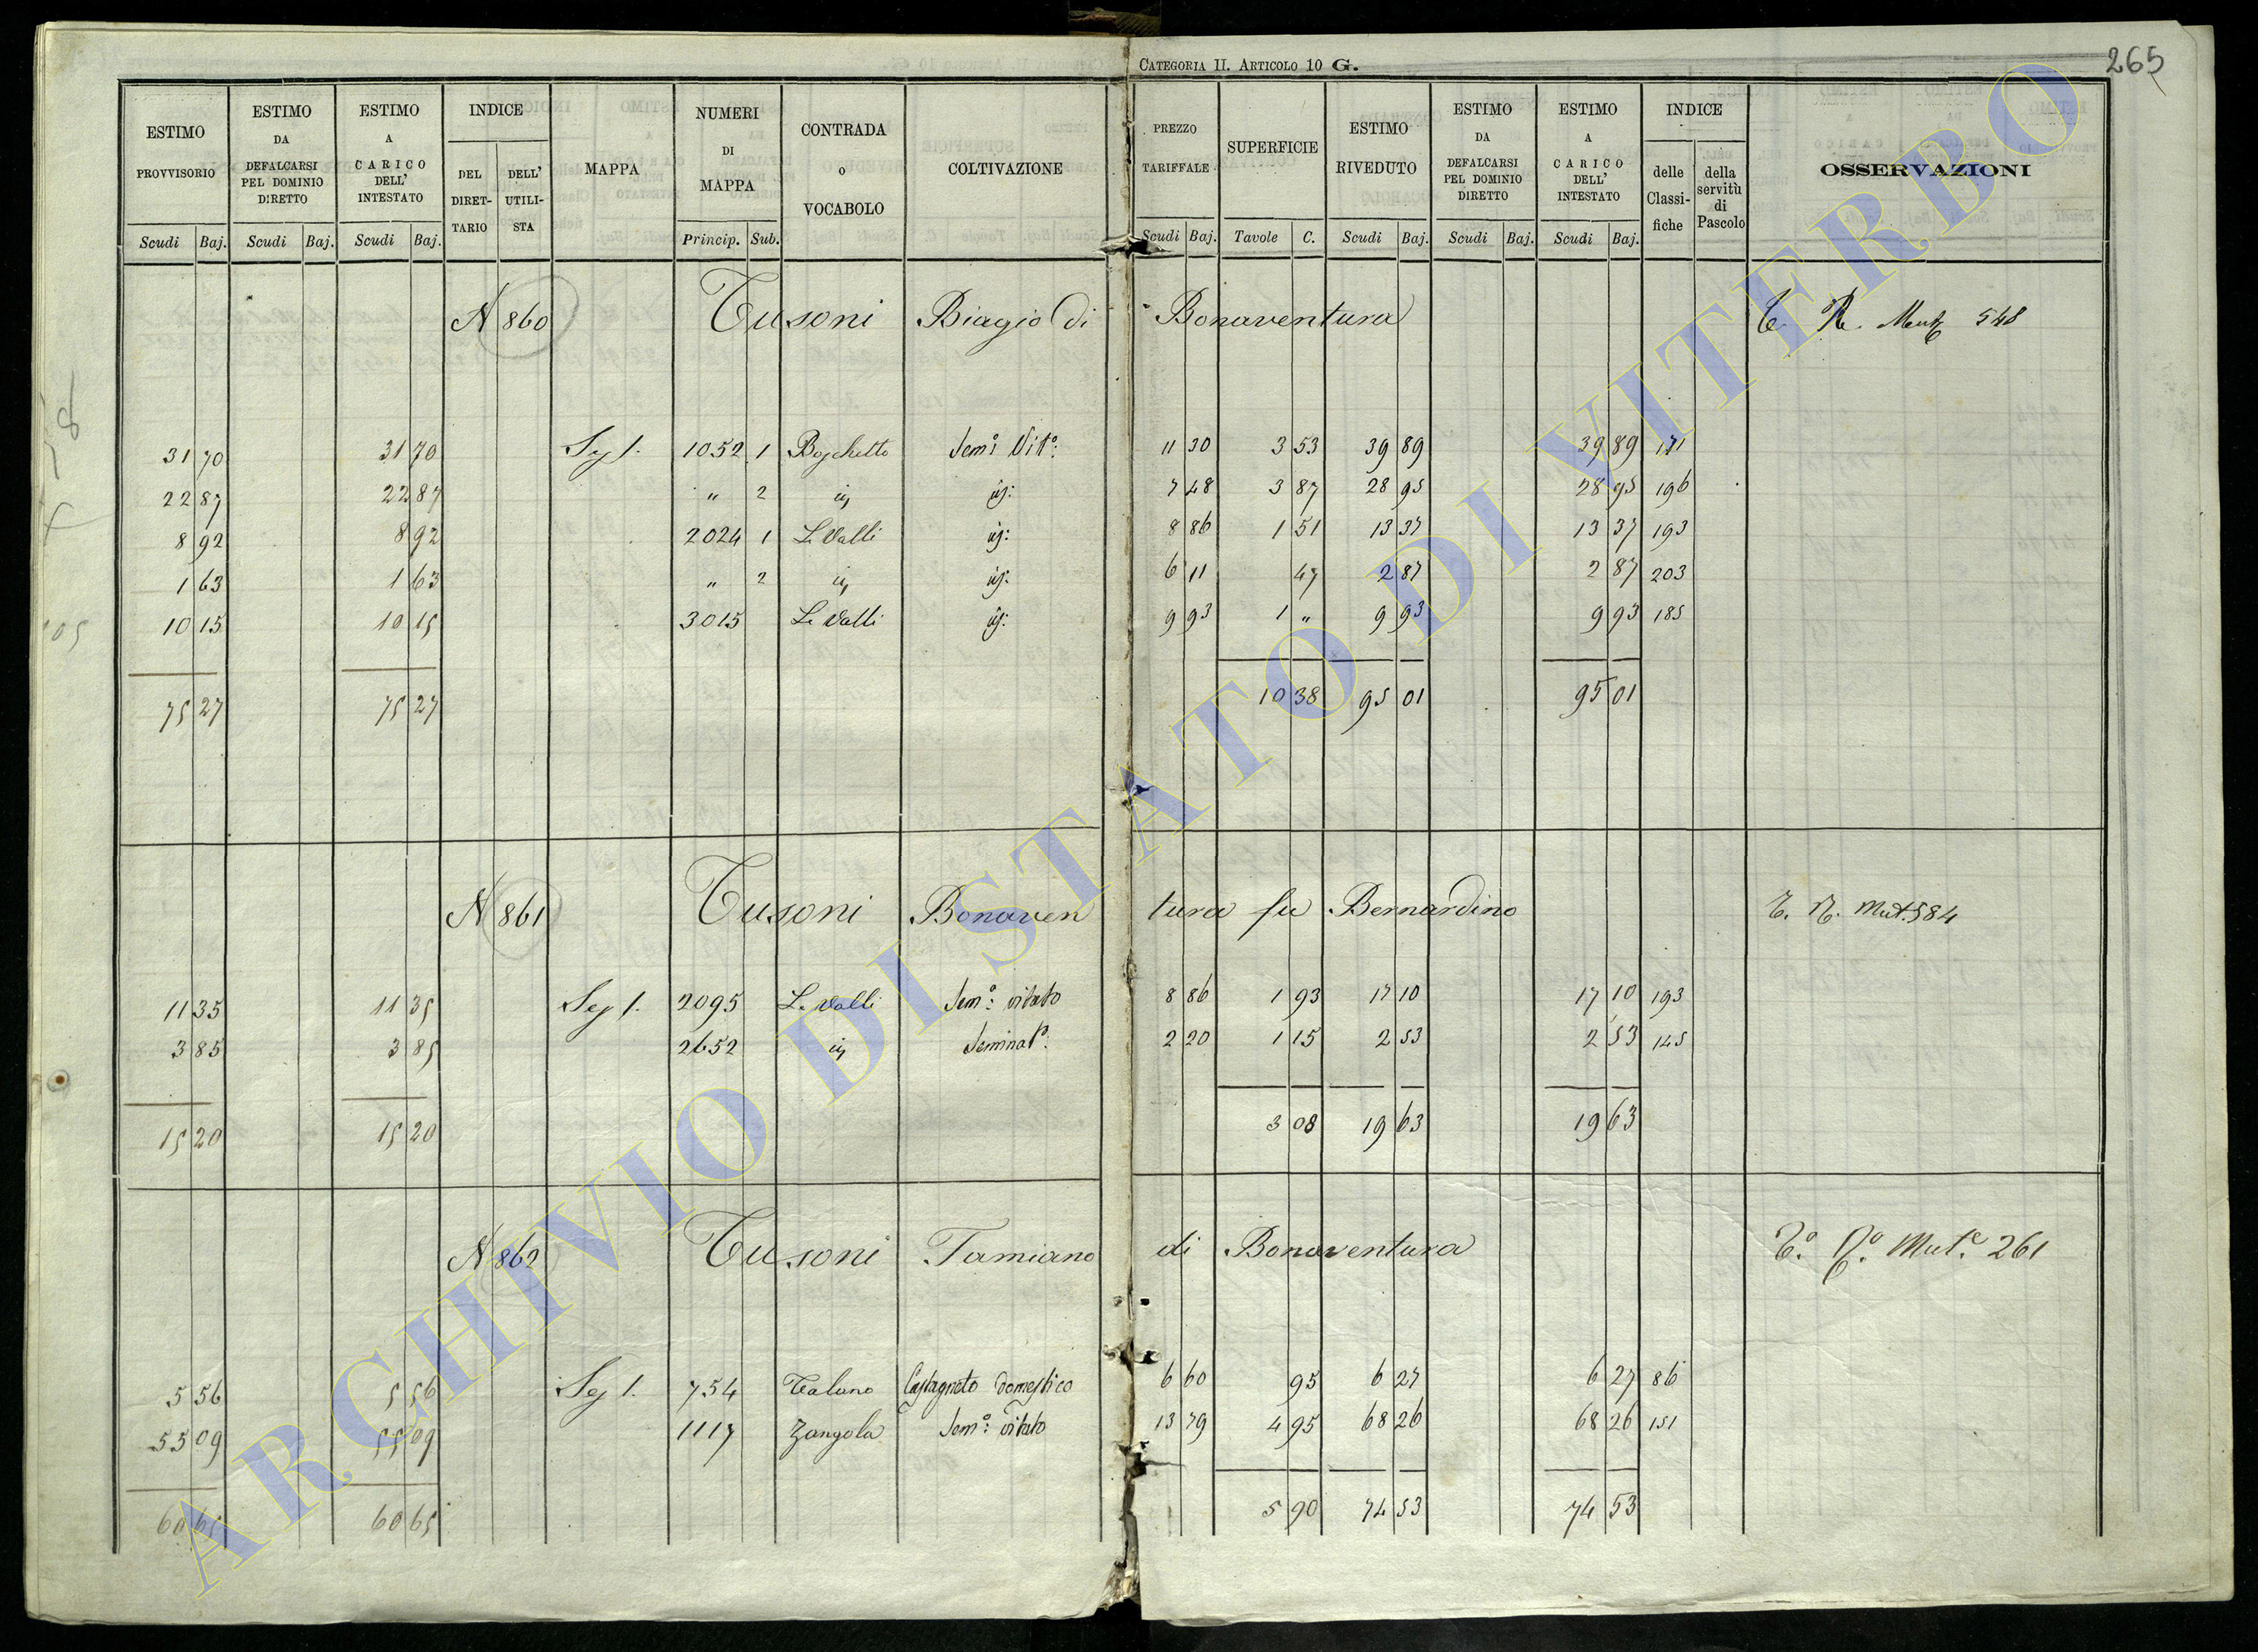 CATEGORIA II. ARTICOLO 10 G.
265
ESTIMO PROVVISORIO
ESTIMO DA DEFALCARSI PEL DOMINIO DIRETTO
ESTIMO A CARICO DELL' INTESTATO
INDICE
DEL DIRETTARIO
DELL' UTILISTA
MAPPA
NUMERI DI MAPPA
CONTRADA O VOCABOLO
COLTIVAZIONE
PREZZO TARIFFALE
SUPERFICIE
ESTIMO RIVEDUTO
ESTIMO DA DEFALCARSI PEL DOMINIO DIRETTO
ESTIMO A CARICO DELL' INTESTATO
INDICE
delle Classifiche
della servitù di Pascolo
OSSERVAZIONI
Scudi Baj. Scudi Baj. Scudi Baj. Princip. Sub. Scudi Baj. Tavole C. Scudi Baj. Scudi Baj. Scudi Baj.
N 860 Tusoni Biagio di Bonaventura 548
31 70 31 70 Sez 1. 1052 1 Boschetto Sem: Vit: 11 30 3 53 39 89 39 89 171
22 87 22 87 " 2 7 48 3 87 28 95 28 95 196
8 92 8 92 2024 1 Le Valli 8 86 1 51 13 37 13 37 193
1 63 1 63 " 2 6 11 47 2 87 2 87 203
10 15 10 15 3015 Le Valli 9 93 1 " 9 93 9 93 185
75 27 75 27 10 38 95 01 95 01
N 861 Tusoni Bonaventura fu Bernardino Mut. 584
11 35 11 35 Sez 1. 2095 Le Valli Sem:° vitato 8 86 1 93 17 10 17 10 193
3 85 3 85 2652 Seminat° 2 20 1 15 2 53 2 53 145
15 20 15 20 3 08 19 63 19 63
N 862 Tusoni Tamiano di Bonaventura Mut.e 261
5 56 5 56 Sez 1. 754 Talano Castagneto domestico 6 60 95 6 27 6 27 86
55 09 55 09 1117 Zangola Sem:° vitato 13 79 4 95 68 26 68 26 151
60 65 60 65 5 90 74 53 74 53
ARCHIVIO DI STATO DI VITERBO